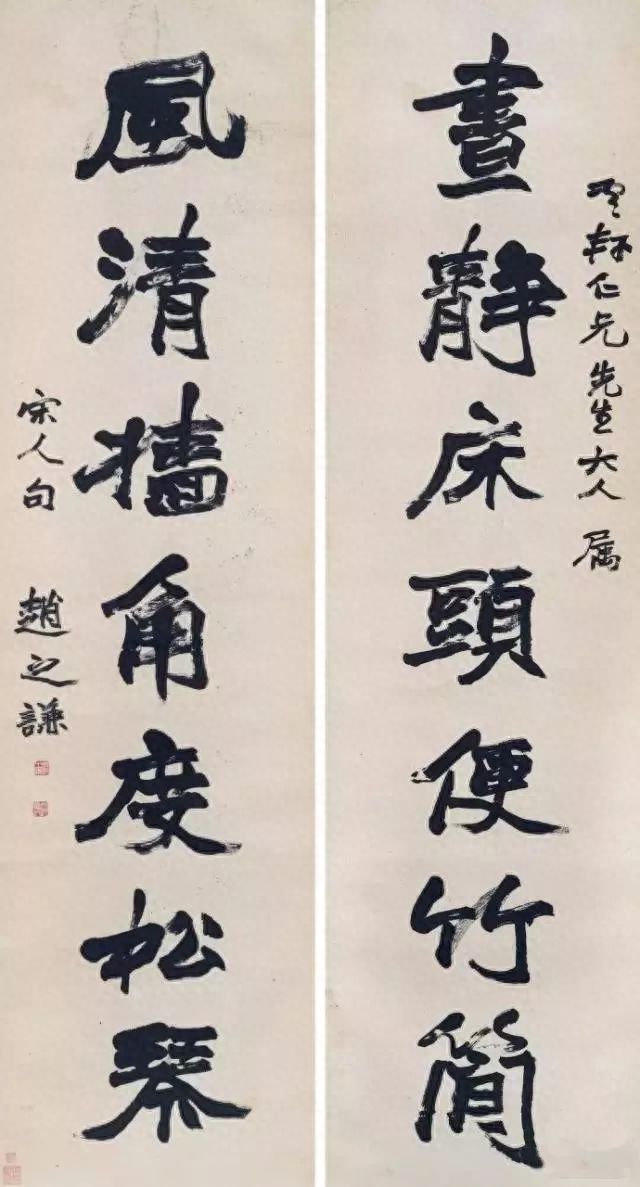 仁兄先生大人 属
晝靜床頭便竹簡
風清牆角度松琴
宋人句 趙之謙